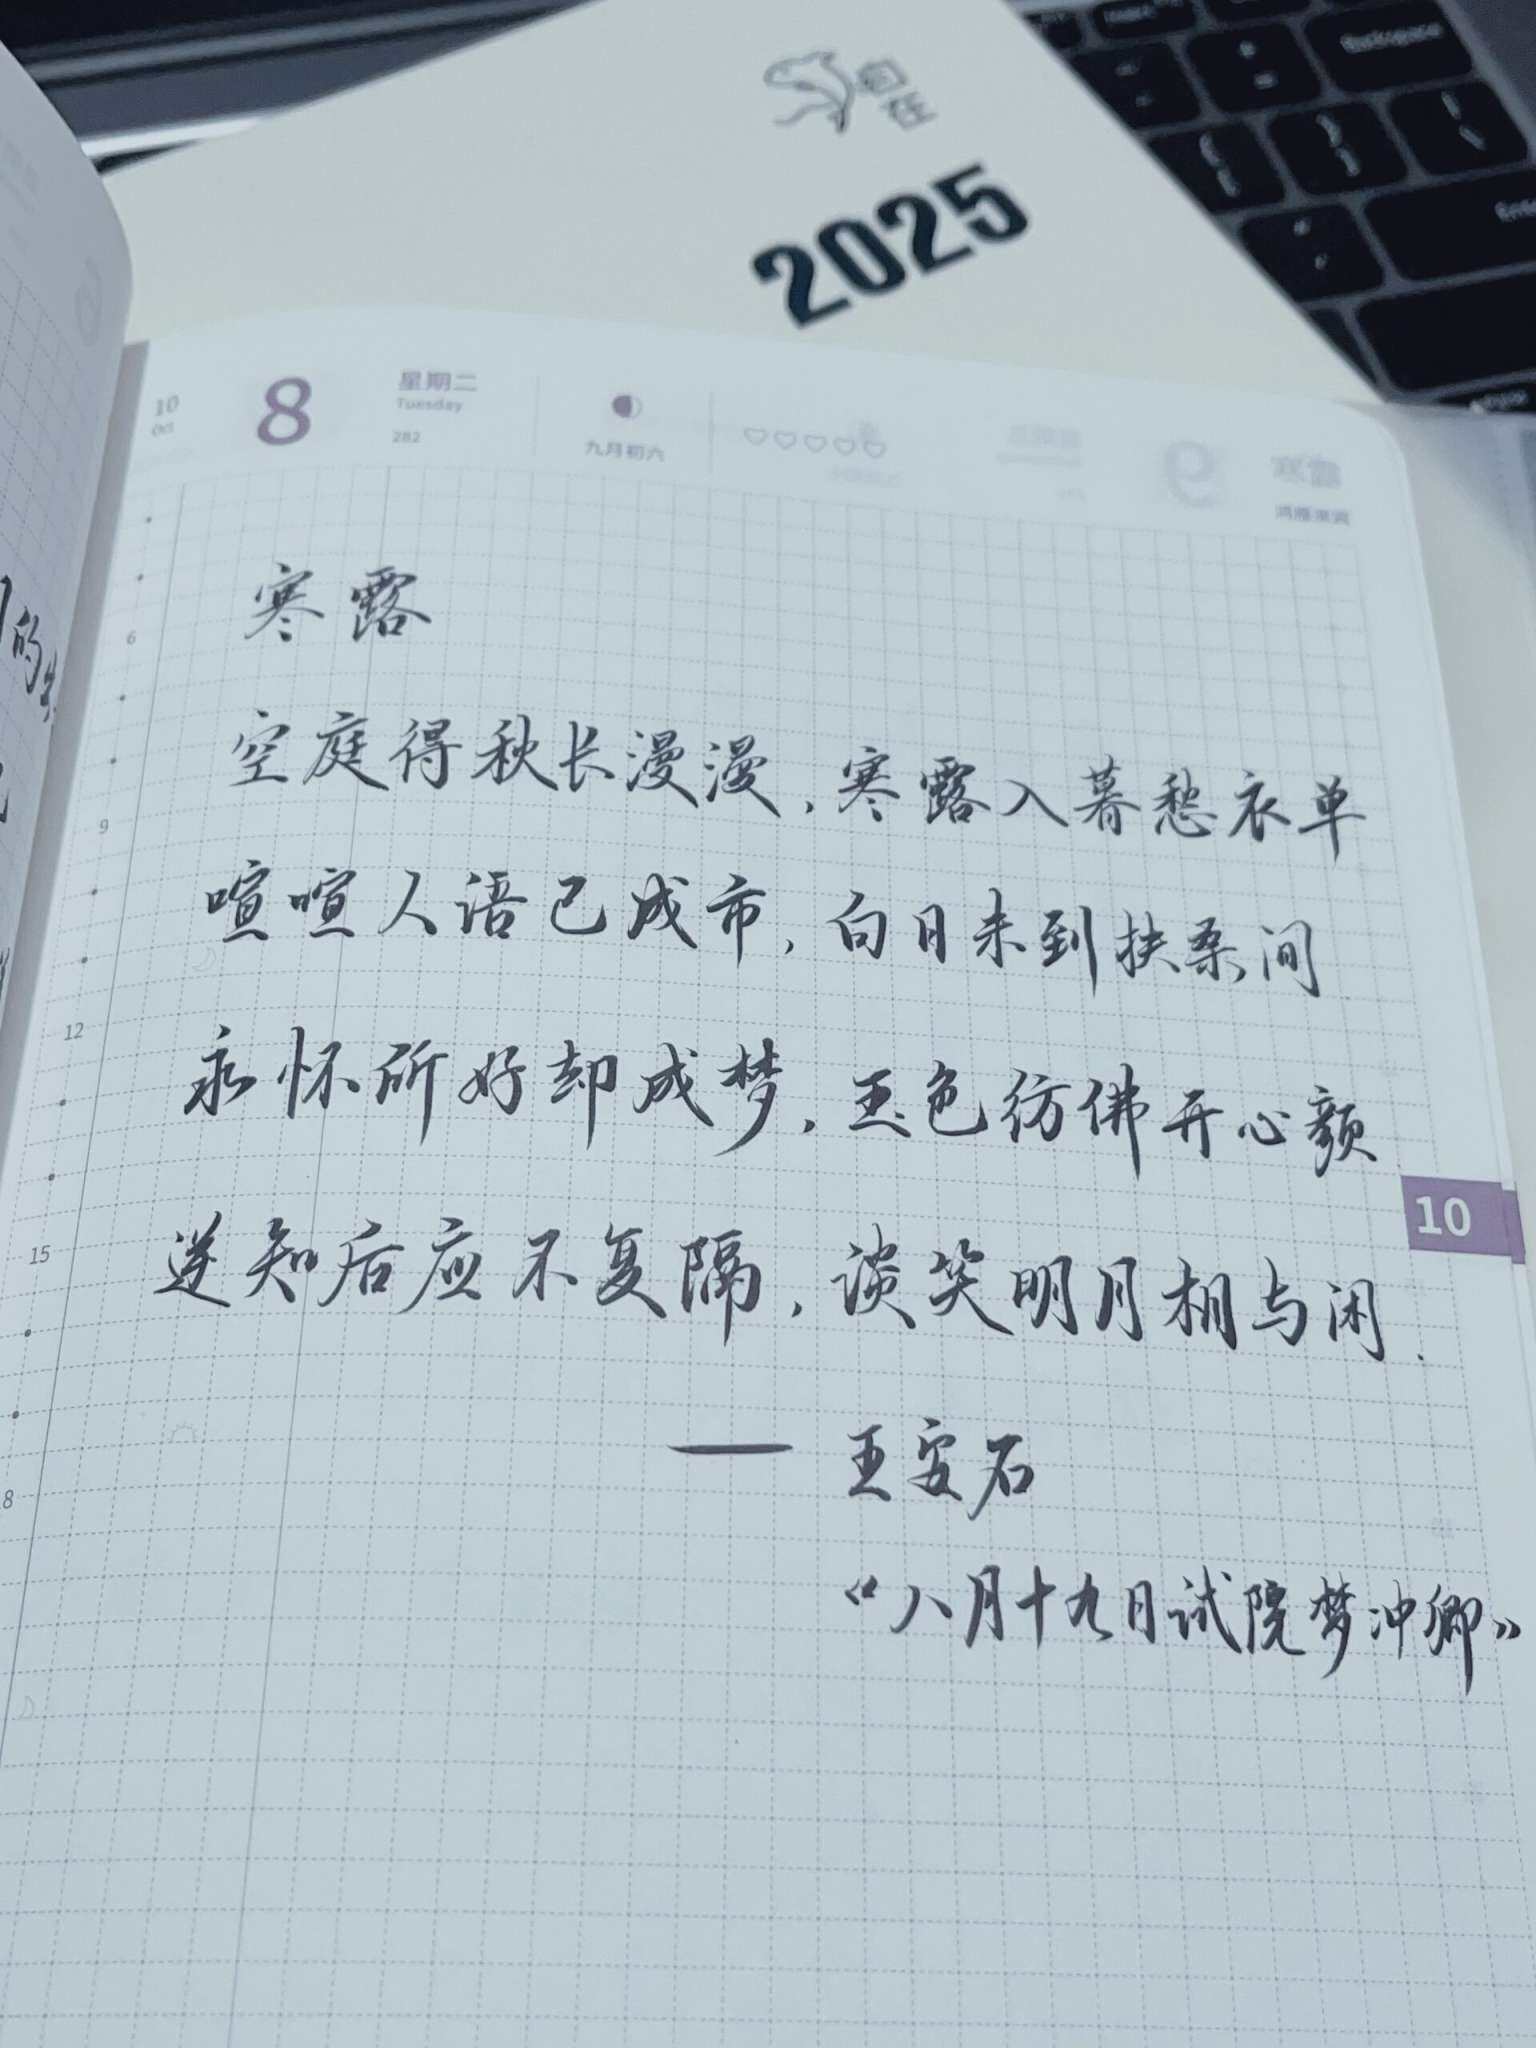 Backspace
Enter
自在
2025
10
Oct
8
星期二
Tuesday
282
九月初六
寒露
6
空庭得秋长漫漫，寒露入暮愁衣单
9
喧喧人语已成市，白日未到扶桑间
12
永怀所好却成梦，玉色彷佛开心颜
10
15
逆知后应不复隔，谈笑明月相与闲．
—— 王安石
《八月十九日试院梦冲卿》